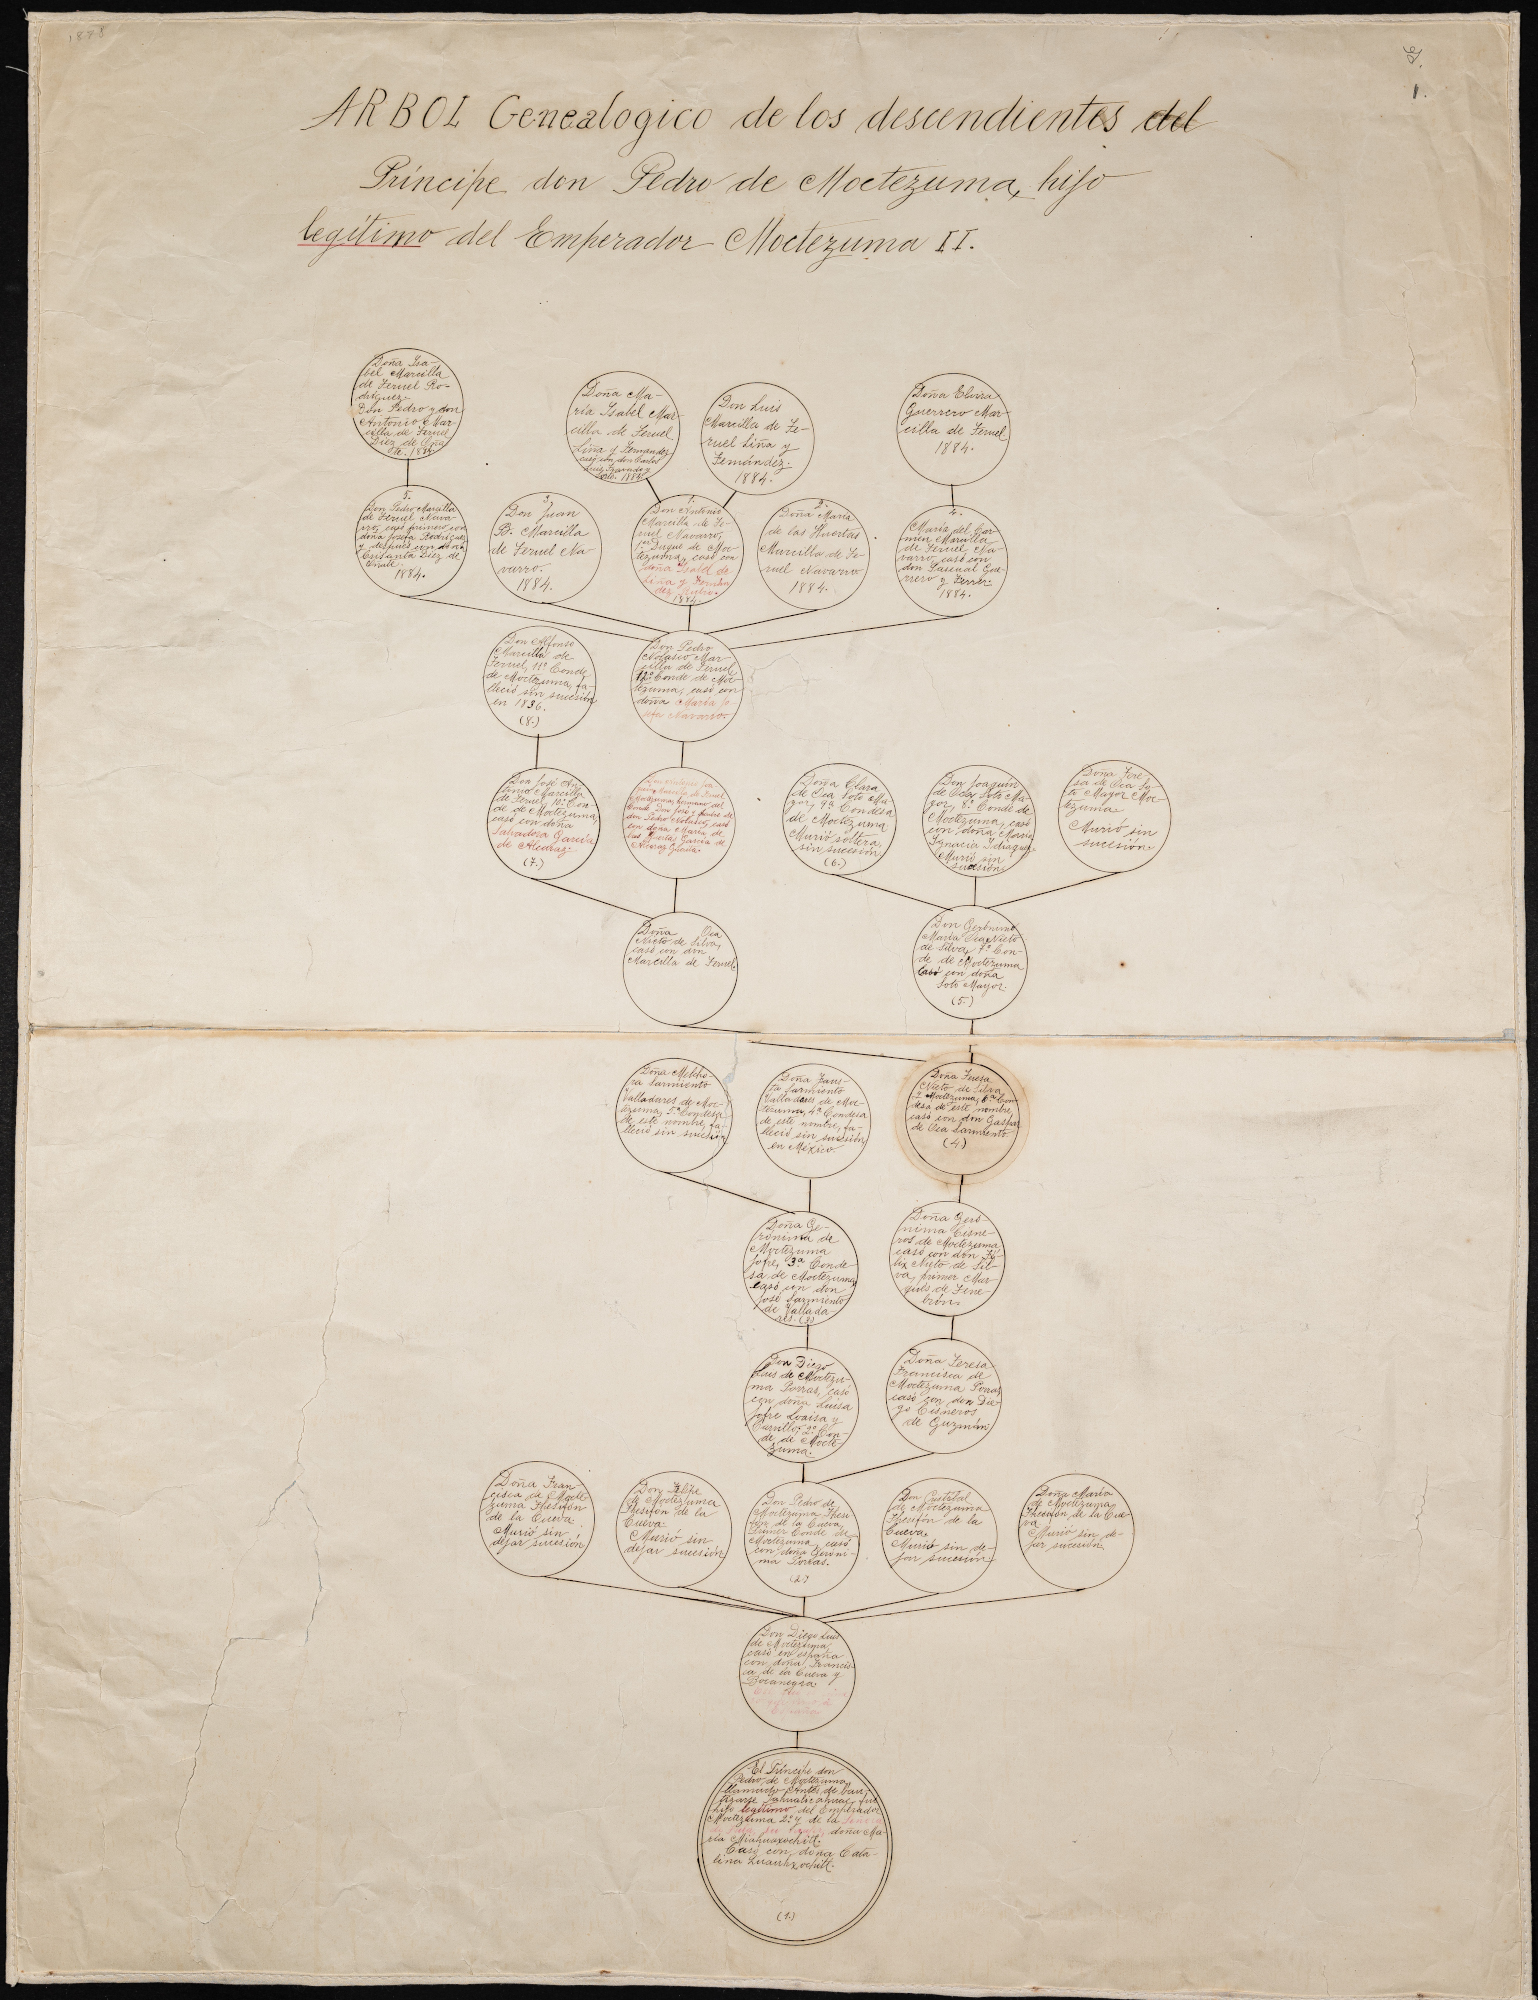 1888
1.
ARBOL Genealogico de los descendientes del
Príncipe don Pedro de Moctezuma, hijo
legítimo del Emperador Moctezuma II.
Doña Isa-
bel Marcilla
de Teruel Ro-
dríguez.
Don Pedro y don
Antonio Mar-
cilla de Teruel
Diez de Oña
te. 1884
Doña Ma-
ría Isabel Mar-
cilla de Teruel
Liña y Fernandez
casó con don Carlos
1884
Don Luis
Marcilla de Te-
ruel Liña y
Fernández.
1884.
Doña Elvira
Guerrero Mar-
cilla de Teruel
1884.
5.
Don Pedro Marcilla
de Teruel Nava-
rro, casó primero con
doña Josefa Rodríguez
y despues con doña
Crisanta Diez de
Oñate.
1884.
3.
Don Juan
B. Marcilla
de Teruel Na-
varro.
1884.
1.
Don Antonio
Marcilla de Te-
ruel Navarro,
1er Duque de Moc-
tezuma, casó con
doña Isabel de
Liña y Fernán
dez Rubio.
1884.
2.
Doña María
de las Huertas
Marcilla de Te-
ruel Navarro
1884.
4.
María del Car-
men Marcilla
de Teruel Na-
varro, casó con
don Pascual Gue-
rrero y Ferrer.
1884.
Don Alfonso
Marcilla de
Teruel, 11º Conde
de Moctezuma, fa-
lleció sin sucesión
en 1836.
(8.)
Don Pedro
Nolasco Mar-
cilla de Teruel
12º Conde de Moc-
tezuma, casó con
doña María Jo-
sefa Navarro.
Don José An-
tonio Marcilla
de Teruel, 10º Con-
de de Moctezuma,
casó con doña
Salvadora García
de Alcaraz.
(7.)
Marcilla de Teruel
Moctezuma, hermano del
Conde Don José y padre de
don Pedro Nolasco, casó
con doña María de
las Huertas García de
Alcaraz
Doña Clara
de Oca Soto Ma-
yor, 9ª Condesa
de Moctezuma
Murió soltera,
sin sucesión
(6.)
Don Joaquín
de Oca Soto Ma-
yor, 8º Conde de
Moctezuma, casó
con doña María
Ignacia Idiaquez
Murió sin
sucesión.
Doña Tere-
sa de Oca So-
to Mayor Moc-
tezuma.
Murió sin
sucesión.
Doña Oca
Nieto de Silva,
casó con don
Marcilla de Teruel.
Don Gerónimo
María Oca Nieto
de Silva, 7º Con-
de de Moctezuma
Casó con doña
Soto Mayor.
(5.)
Doña Melcho-
ra Sarmiento
Valladares de Moc-
tezuma, 5ª Condesa
de este nombre, fa-
lleció sin sucesión
Doña Faus-
ta Sarmiento
Valladares de Moc-
tezuma, 4ª Condesa
de este nombre, fa-
lleció sin sucesión
en México.
Doña Teresa
Nieto de Silva
y Moctezuma, 6ª Con-
desa de este nombre,
casó con don Gaspar
de Oca Sarmiento.
(4)
Doña Ge-
rónima de
Moctezuma
Jofre, 3ª Conde-
sa de Moctezuma,
casó con don
José Sarmiento
de Vallada-
res. (3)
Doña Geró-
nima Cisne-
ros de Moctezuma
casó con don Fé-
lix Nieto de Sil-
va, primer Mar-
qués de Tene-
brón.
Don Diego
Luis de Moctezu-
ma Porras, casó
con doña Luisa
Jofre Loaisa y
Carrillo, 2º Con-
de de Mocte-
zuma.
Doña Teresa
Francisca de
Moctezuma Porras
casó con don Die-
go Cisneros
de Guzmán.
Doña Fran-
cisca de Mocte
zuma Ihesifón
de la Cueva.
Murió sin
dejar sucesión
Don Felipe
de Moctezuma
Ihesifón de la
Cueva.
Murió sin
dejar sucesión
Don Pedro de
Moctezuma Ihesi
fón de la Cueva,
Primer Conde de
Moctezuma, casó
con doña Geróni-
ma Porras.
(2.)
Don Cristóbal
de Moctezuma
Ihesifón de la
Cueva.
Murió sin de-
jar sucesión.
Doña María
de Moctezuma
Ihesifón de la Cue-
va.
Murió sin de-
jar sucesión.
Don Diego Luis
de Moctezuma,
casó en españa
con doña Francis-
ca de la Cueva y
Bocanegra.
El Príncipe don
Pedro de Moctezuma,
llamado Antes de bau-
tizarse Tahualicahuac, fué
hijo legítimo del Emperador
Moctezuma 2º y de la
doña Ma-
ría Miahuaxochitl.
Casó con doña Cata-
lina
(1.)